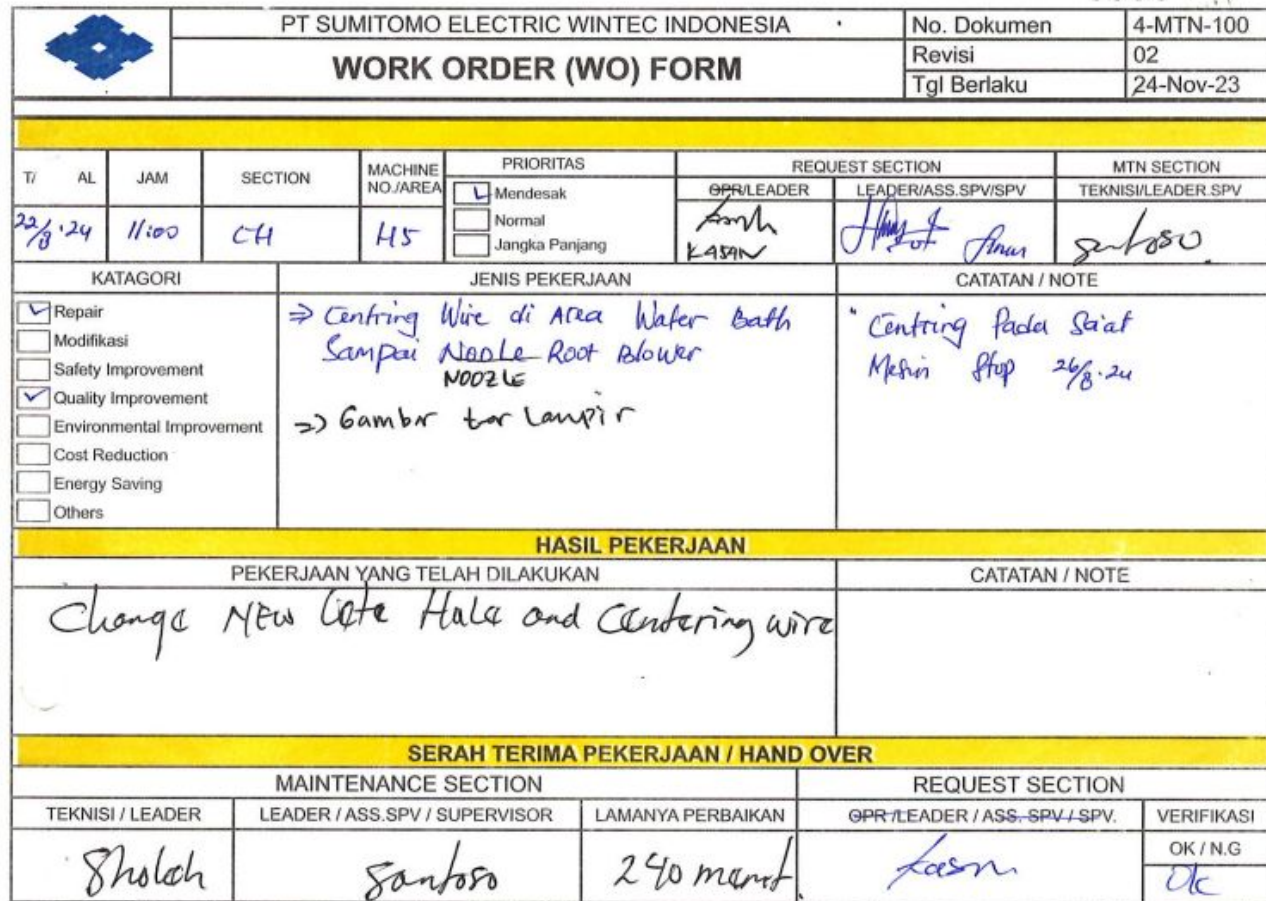 PT SUMITOMO ELECTRIC WINTEC INDONESIA
WORK ORDER (WO) FORM
No. Dokumen 4-MTN-100
Revisi 02
Tgl Berlaku 24-Nov-23
T/ AL JAM SECTION MACHINE NO./AREA PRIORITAS REQUEST SECTION MTN SECTION
OPR/LEADER LEADER/ASS.SPV/SPV TEKNISI/LEADER.SPV
Mendesak
Normal
Jangka Panjang
22/8.24 11:00 CH H5
KASAN
santoso
KATAGORI JENIS PEKERJAAN CATATAN / NOTE
Repair
Modifikasi
Safety Improvement
Quality Improvement
Environmental Improvement
Cost Reduction
Energy Saving
Others
⇒ Centring Wire di Area Water Bath
Sampai Noole Root Blower
NOOZLE
=> Gambr ter lampir
" Centring Pada Saat
Mesin Stop 26/8.24
HASIL PEKERJAAN
PEKERJAAN YANG TELAH DILAKUKAN CATATAN / NOTE
Change NEW Hale and Centering wire
SERAH TERIMA PEKERJAAN / HAND OVER
MAINTENANCE SECTION REQUEST SECTION
TEKNISI / LEADER LEADER / ASS.SPV / SUPERVISOR LAMANYA PERBAIKAN OPR /LEADER / ASS. SPV / SPV. VERIFIKASI
OK / N.G
Sholeh santoso 240 menit kasn Ok